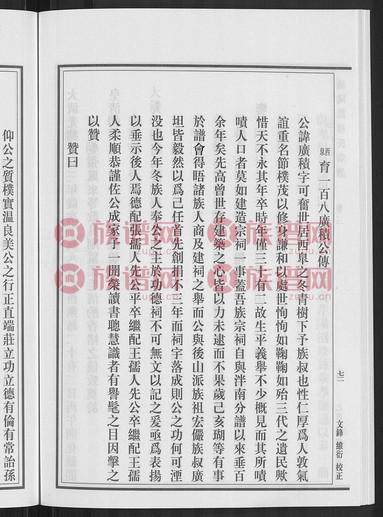 育一百八廣積公傳
公諱廣積字可奮世居西皐之冬青樹下予族叔也性仁厚爲人敦氣
誼重名節樸茂以修身謙和以處世恂恂如鞠鞠如殆三代之遺民歟
惜天不永其年卒時年僅三十有二故生平義舉不少概見而其所嘖
嘖人口者莫如建造宗祠一事蓋吾族宗祠自與泮南分譜以來垂百
余年矣先高曾世存建築之心皆以力未逮而不果歲己亥瑚等有事
於譜會得唔諸族人商及建祠之舉而公與後山派族祖宏儼族叔廣
坦皆毅然以爲己任首先創捐不三年而祠宇落成則公之功何可湮
没也今年冬族人奉公之主於功德祠不可無文以記之爰亟爲表揚
以垂示後人焉德配張孺人先公平卒繼配王孺人先公卒繼配王孺
人柔順恭謹佐公成家予一開榮讀書聰慧識者有譽髦之目因擊之
以贊
贊曰
仰公之質樸實温良美公之行正直端莊立功立德有倫有常詒孫
七二
文鋒 維衍 校正
族譜网